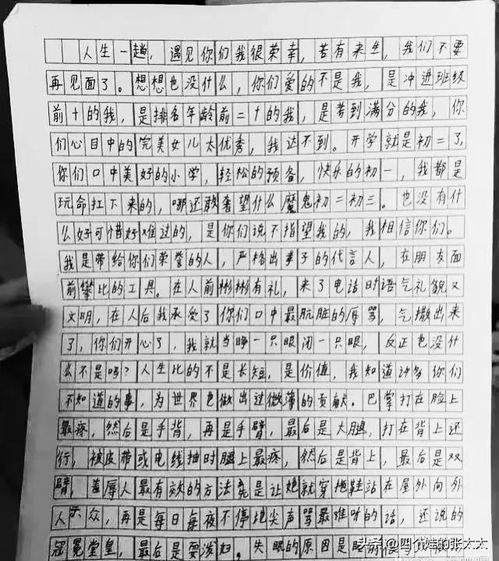 人生一趟，遇见你们我很荣幸，若有来生，我们不要
再见面了。想想也没什么，你们爱的不是我，是冲进班级
前十的我，是排名年龄前二十的我，是考到满分的我，你
们心目中的完美女儿太优秀，我达不到。开学就是初二了，
你们口中美好的小学，轻松的预备，快乐的初一，我都是
玩命扛下来的，哪还敢奢望什么魔鬼初二初三。也没有什
么好可惜好难过的，是你们说不指望我的，我相信你们。
我是带给你们荣誉的人，严格出事子的代言人，在朋友面
前攀比的工具。在人前彬彬有礼，来了电话时语气礼貌又
文明，在人后我承受了你们口中最肮脏的辱骂，气撒出来
了，你们开心了，我就当睁一只眼闭一只眼，反正也没什
么不是吗？人生比的不是长短，是价值，我知道许多你们
不知道的事，为世界也做出过微薄的贡献。巴掌打在脸上
最疼，然后是手背，再是手臂，最后是大腿，打在背上还
行，被皮带或电线抽时腿上最疼，然后是背上，最后是双
臂，羞辱人最有效的方法竟是让她就穿拖鞋站在屋外向外
人示众，再是每日每夜不停地尖声骂最难听的话，还说的
冠冕堂皇，最后是耍泼妇。失眠的原因是
头条 @四个娃的张太太